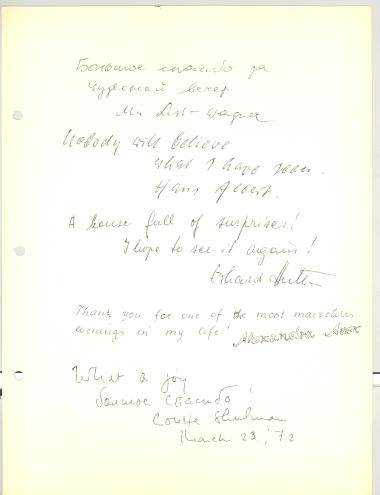 Большое спасибо за
чудесный вечер
List-Wagner
Nobody will believe
what I have seen.
Hans Albert.
A house full of surprises!
I hope to see it again!
Erhard
Thank you for one of the most marvelous
evenings in my life!
What a joy
болшое спасибо!
Shulman
March 23, '72